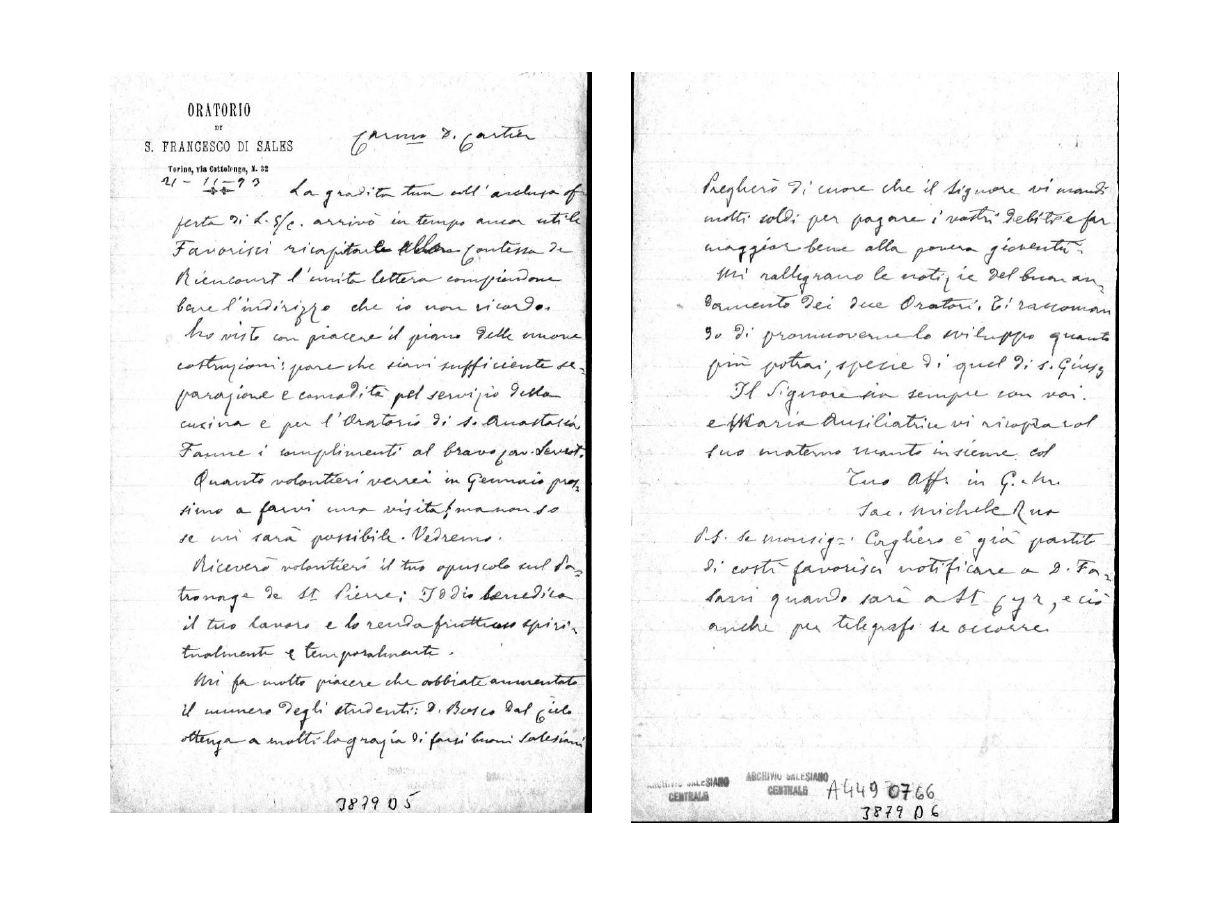 ORATORIO
DI
S. FRANCESCO DI SALES
Torino, via Cottolengo, N. 32
Carmo D. Cartier
21-11-93
La gradita tua coll'acclusa of
ferta di L. arrivò in tempo ancor utile
Favorisci ricapitare alla Contessa de
Riencourt l'unita lettera compiendone
bene l'indirizzo che io non ricordo.
Ho visto con piacere il piano delle nuove
costruzioni: pare che siavi sufficiente se-
parazione e comodità pel servizio della
cucina e per l'Oratorio di S. Anastasia
Fanne i complimenti al bravo Cav. Levrot.
Quanto volontieri verrei in Gennaio pros-
simo a farvi una visita! ma non so
se mi sarà possibile. Vedremo.
Riceverò volontieri il tuo opuscolo sul Pa-
tronage de St Pierre; Iddio benedica
il tuo lavoro e lo renda fruttuoso spiri-
tualmente e temporalmente.
Mi fa molto piacere che abbiate aumentato
il numero degli studenti: D. Bosco dal Cielo
ottenga a molti la grazia di farsi buoni Salesiani
3879 D 5
Pregherò di cuore che il Signore vi mandi
molti soldi per pagare i vostri debiti e far
maggior bene alla povera gioventù.
Mi rallegrano le notizie del buon an-
damento dei due Oratori. Ti raccoman
do di promuoverne lo sviluppo quanto
più potrai, specie di quel di S. Gius
Il Signore sia sempre con voi.
e Maria Ausiliatrice vi ricopra col
suo materno manto insieme col
Tuo Aff. in G. e M.
Sac. Michele Rua
P.S. Se monsig. Cagliero è già partito
di costì favorisci notificare a D. Fa-
sani quando sarà a St Cyr, e ciò
anche per telegrafo se occorre.
ARCHIVIO SALESIANO
CENTRALE
ARCHIVIO SALESIANO
CENTRALE
A449 0766
3879 D 6